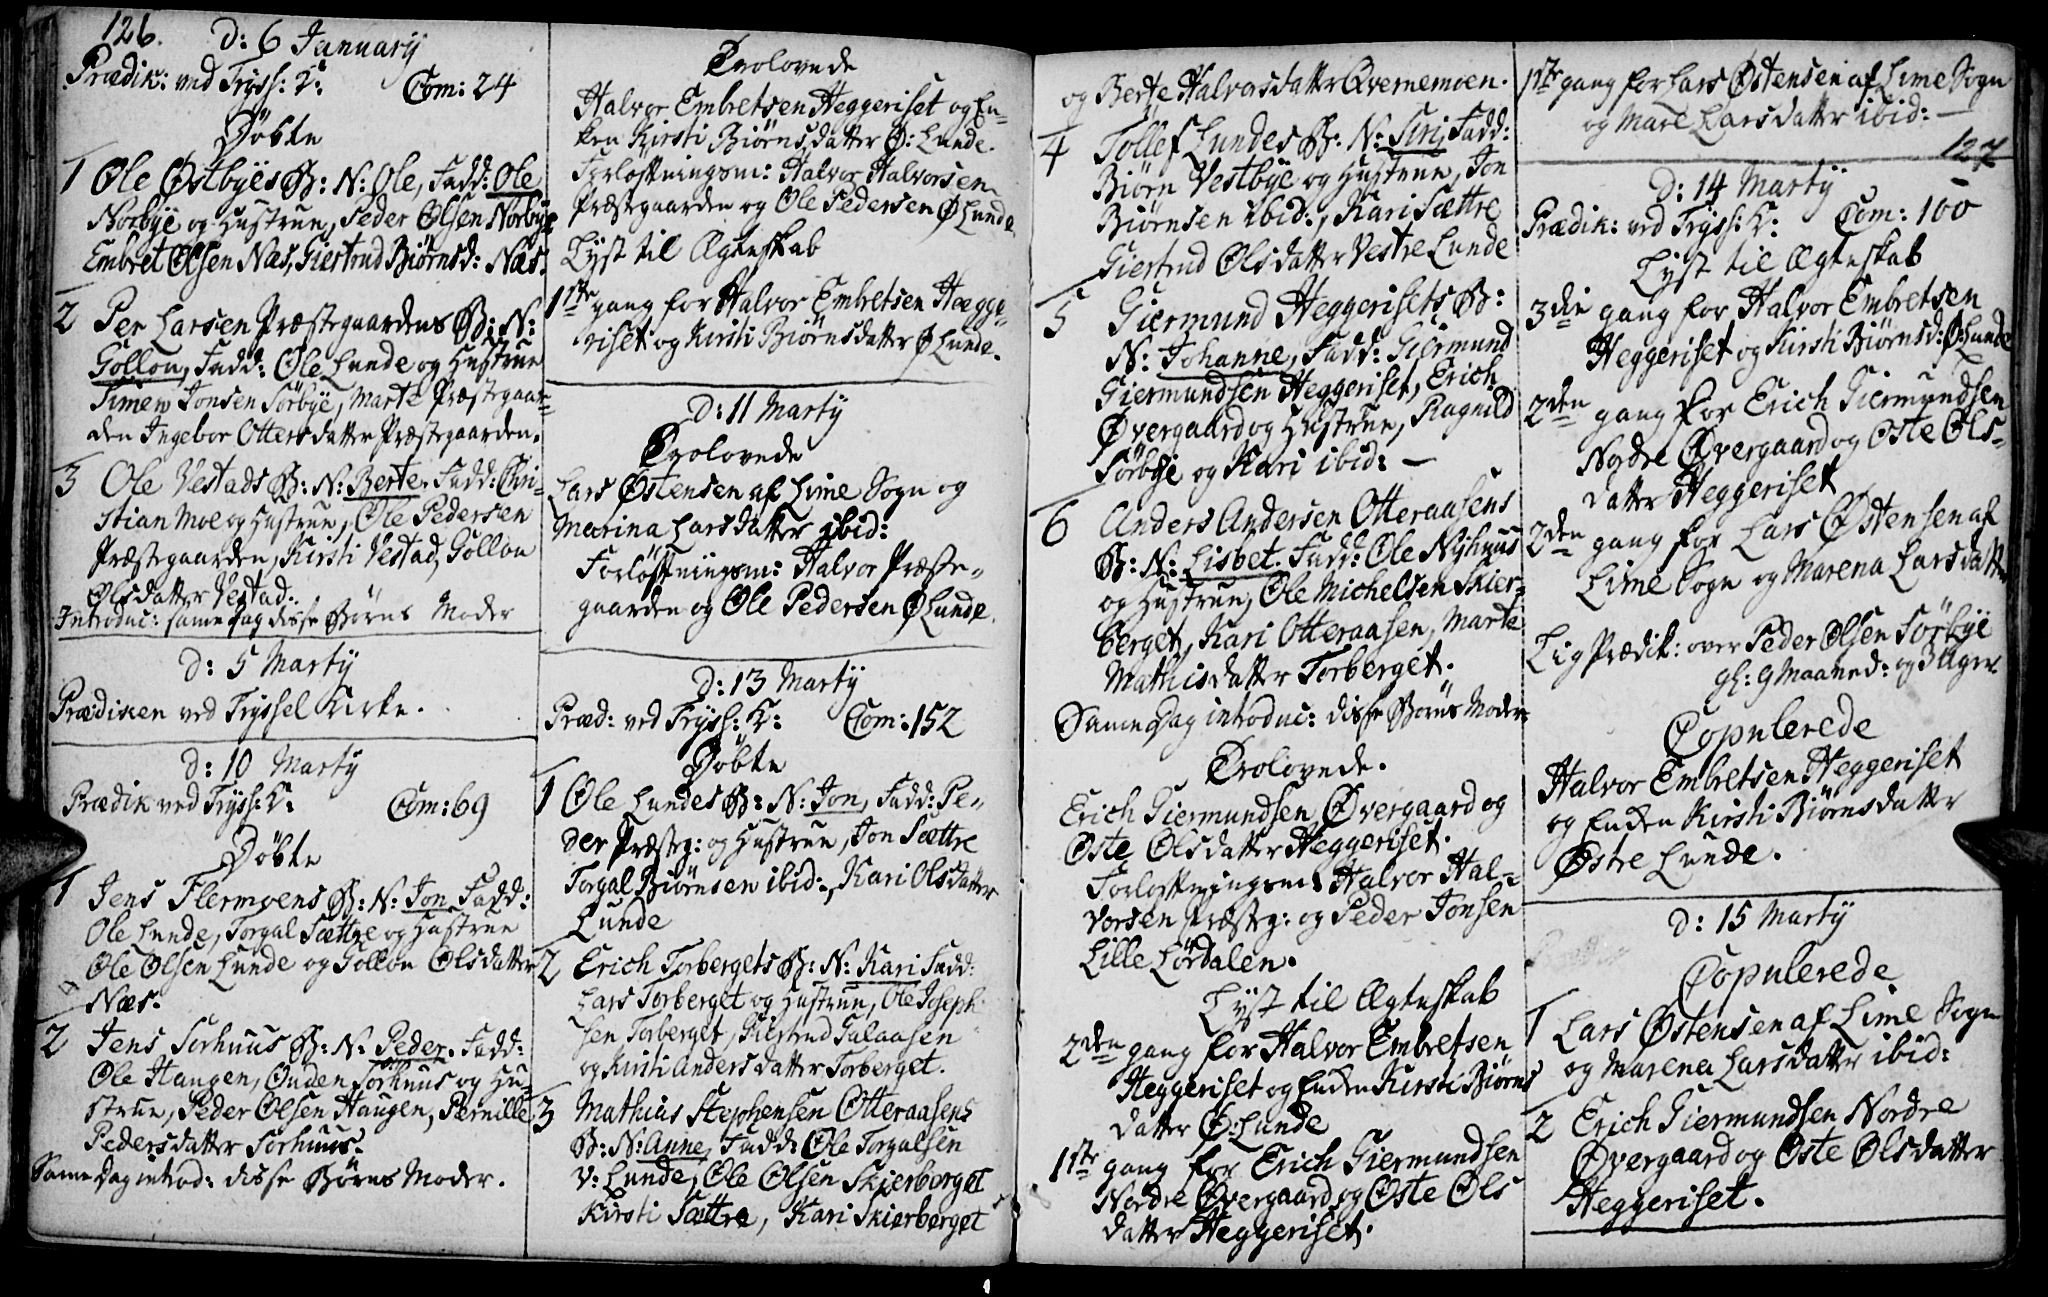 126.
D: 6 Januarij
Prædik: ved Tryss: K: Com: 24
Døbte
1 Ole Østbyes B: N: Ole, Fadd: Ole
Norbye og Hustrue, Peder Olsen Norbye
Embret Olsen Næs, Giertrud Biørnsd: Næs.
2 Per Larsen Præstegaardens B: N:
Gollou, Fadd: Ole Lunde og Hustrue
Simen Jonsen Sørbye, Marte Præstegaar-
den Ingebor Ottersdatter Præstegaarden.
3 Ole Vestads B: N: Berte. Fadd: Chri-
stian Moe og Hustrue, Ole Pedersen
Præstegaarden, Kirsti Vestad, Gollou
Olsdatter Vestad.
Introduc: samme dag disse Børns Moder
D: 5 Martij
Prædiken ved Tryssel Kirke.
D: 10 Martij
Prædik ved Tryss: K: Com: 69
Døbte
1 Jens Flermoens B: N: Jon, Fadd:
Ole Lunde, Torgal Sættre og Hustrue
Ole Olsen Lunde og Gollou Olsdatter
Næs.
2 Jens Sorhuus B: N: Peder. Fadd:
Ole Haugen, Ouden Sorhuus og Hu-
strue, Peder Olsen Haugen, Pernille
Pedersdatter Sorhuus.
Samme Dag introd: disse Børns Moder.
Trolovede
Halvor Embretsen Heggeriset og En-
ken Kirsti Biørnsdatter Ø: Lunde.
Forløftningsm: Halvor Halvorsen
Præstgaarden og Ole Pedersen Ø Lunde
Lyst til Ægteskab
1ste gang for Halvor Embretsen Hegge-
riset og Kirsti Biørnsdatter Ø Lunde.
D: 11 Martij
Trolovede
Lars Østensen af Lime Sogn og
Marina Larsdatter ibid:
Forløftningsm: Halvor Præste-
gaarden og Ole Pedersen Ø Lunde.
D: 13 Martij
Præd: ved Tryss: K: Com: 152
Døbte
1 Ole Lundes B: N: Jon, Fadd: Pe-
der Præstg: og Hustrue, Jon Sættre
Torgal Biørnsen ibid:, Kari Olsdatter
Lunde
2 Erich Torbergets B: N: Kari Fadd:
Lars Torberget og Hustrue, Ole Joseph-
sen Torberget, Giertrud Galaasen
og Kirsti Andersdatter Torberget.
3 Mathias Stephensen Otteraasens
B: N: Anne, Fadd: Ole Torgalsen
V: Lunde, Ole Olsen Skierberget
Kirsti Sættre, Kari Skierberget
og Berte Halvorsdatter Qvernemoen.
4 Tollef Lundes B: N: Siri Fadd:
Biørn Vestbye og Hustrue, Jon
Biørnsen ibid:, Kari Sættre
Giertrud Olsdatter Vestre Lunde
5 Giermund Heggerisets B:
N: Johanne, Fadd: Giermund
Giermundsen Heggeriset, Erich
Øvergaard og Hustrue, Ragnild
Sørbye og Kari ibid: —
6 Anders Andersen Otteraasens
B: N: Lisbet. Fadd: Ole Nyhuus
og Hustrue, Ole Michelsen Skier-
berget, Kari Otteraasen, Marte
Mathisdatter Torberget.
Samme Dag introduc: disse Børns Moder
Trolovede.
Erich Giermundsen Øvergaard og
Oste Olsdatter Heggeriset.
Forløftningsm: Halvor Hal-
vorsen Præstg: og Peder Jonsen
Lille Lørdalen.
Lyst til Ægteskab
2den gang for Halvor Embretsen
Heggeriset og Enken Kirsti Biørns
datter Ø: Lunde
1ste gang for Erich Giermundsen
Nordre Øvergaard og Oste Ols
datter Heggeriset.
1ste gang for Lars Østensen af Lime Sogn
og Mare Larsdatter ibid: —
127
D: 14 Martij
Prædik: ved Tryss: K: Com: 100
Lyst til Ægteskab
3die gang for Halvor Embretsen
Heggeriset og Kirsti Biørnsd: Ø: Lunde
2den gang for Erich Giermundsen
Nordre Øvergaard og Oste Ols-
datter Heggeriset
2den gang for Lars Østensen af
Lime Sogn og Marena Larsdatter
Lig Prædik: over Peder Olsen Sørbye
gl: 9 Maaned: og 3 Uger
Copulerede
Halvor Embretsen Heggeriset
og Enken Kirsti Biørnsdatter
Østre Lunde.
D: 15 Martij
Copulerede
1 Lars Østensen af Lime Sogn
og Marena Larsdatter ibid:
2 Erich Giermundsen Nordre
Øvergaard og Oste Olsdatter
Heggeriset.